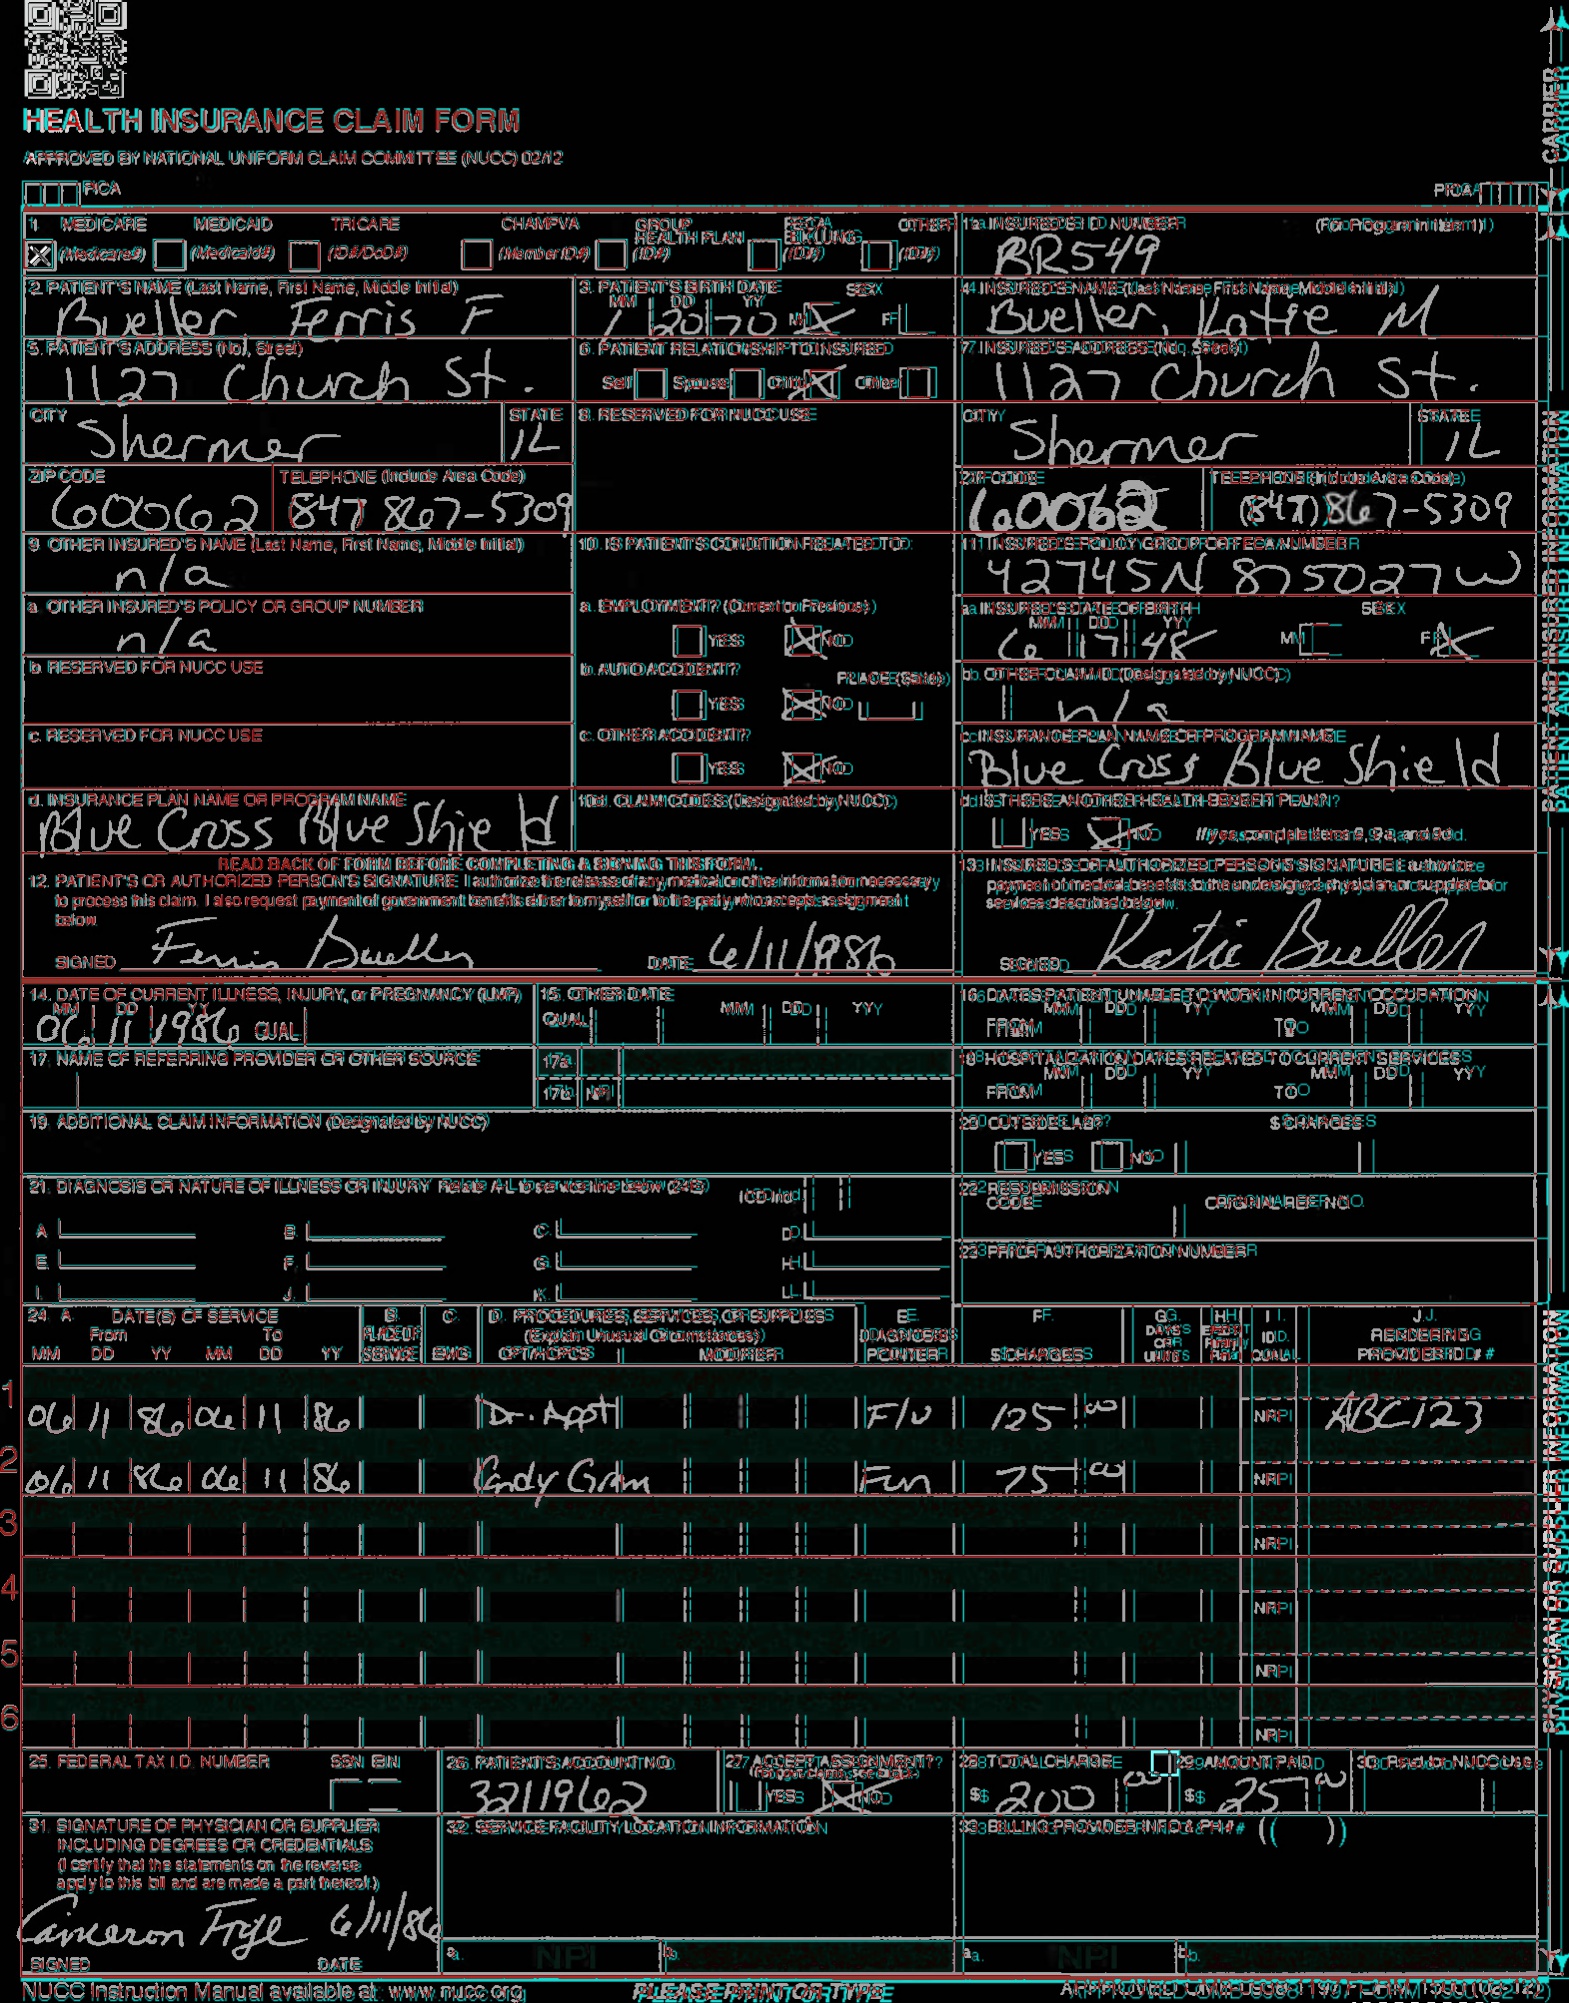 HEALTH INSURANCE CLAIM FORM
APPROVED BY NATIONAL UNIFORM CLAIM COMMITTEE (NUCC) 02/12
PICA PICA
CARRIER
1. MEDICARE MEDICAID TRICARE CHAMPVA GROUP HEALTH PLAN FECA BLK LUNG OTHER
(Medicare#) (Medicaid#) (ID#/DoD#) (Member ID#) (ID#) (ID#) (ID#)
1a. INSURED'S I.D. NUMBER (For Program in Item 1)
BR549
2. PATIENT'S NAME (Last Name, First Name, Middle Initial)
Bueller, Ferris F
3. PATIENT'S BIRTH DATE SEX
MM DD YY
1 20 70 M X F
4. INSURED'S NAME (Last Name, First Name, Middle Initial)
Bueller, Katie M
5. PATIENT'S ADDRESS (No., Street)
1127 Church St.
6. PATIENT RELATIONSHIP TO INSURED
Self Spouse Child X Other
7. INSURED'S ADDRESS (No., Street)
1127 Church St.
CITY STATE
Shermer IL
8. RESERVED FOR NUCC USE
CITY STATE
Shermer IL
ZIP CODE TELEPHONE (Include Area Code)
60062 (847) 867-5309
ZIP CODE TELEPHONE (Include Area Code)
60062 (847) 867-5309
9. OTHER INSURED'S NAME (Last Name, First Name, Middle Initial)
n/a
10. IS PATIENT'S CONDITION RELATED TO:
11. INSURED'S POLICY GROUP OR FECA NUMBER
42745N 875027W
a. OTHER INSURED'S POLICY OR GROUP NUMBER
n/a
a. EMPLOYMENT? (Current or Previous)
YES X NO
a. INSURED'S DATE OF BIRTH SEX
MM DD YY
6 17 48 M F X
b. RESERVED FOR NUCC USE
b. AUTO ACCIDENT? PLACE (State)
YES X NO
b. OTHER CLAIM ID (Designated by NUCC)
n/a
c. RESERVED FOR NUCC USE
c. OTHER ACCIDENT?
YES X NO
c. INSURANCE PLAN NAME OR PROGRAM NAME
Blue Cross Blue Shield
d. INSURANCE PLAN NAME OR PROGRAM NAME
Blue Cross Blue Shield
10d. CLAIM CODES (Designated by NUCC)
d. IS THERE ANOTHER HEALTH BENEFIT PLAN?
YES X NO If yes, complete items 9, 9a, and 9d.
READ BACK OF FORM BEFORE COMPLETING & SIGNING THIS FORM.
12. PATIENT'S OR AUTHORIZED PERSON'S SIGNATURE I authorize the release of any medical or other information necessary
to process this claim. I also request payment of government benefits either to myself or to the party who accepts assignment
below.
SIGNED Ferris Bueller DATE 6/11/1986
13. INSURED'S OR AUTHORIZED PERSON'S SIGNATURE I authorize
payment of medical benefits to the undersigned physician or supplier for
services described below.
SIGNED Katie Bueller
PATIENT AND INSURED INFORMATION
14. DATE OF CURRENT ILLNESS, INJURY, or PREGNANCY (LMP)
MM DD YY
06 11 1986 QUAL.
15. OTHER DATE
QUAL. MM DD YY
16. DATES PATIENT UNABLE TO WORK IN CURRENT OCCUPATION
MM DD YY MM DD YY
FROM TO
17. NAME OF REFERRING PROVIDER OR OTHER SOURCE
17a.
17b. NPI
18. HOSPITALIZATION DATES RELATED TO CURRENT SERVICES
MM DD YY MM DD YY
FROM TO
19. ADDITIONAL CLAIM INFORMATION (Designated by NUCC)
20. OUTSIDE LAB? $ CHARGES
YES NO
21. DIAGNOSIS OR NATURE OF ILLNESS OR INJURY Relate A-L to service line below (24E) ICD Ind.
A. B. C. D.
E. F. G. H.
I. J. K. L.
22. RESUBMISSION CODE ORIGINAL REF. NO.
23. PRIOR AUTHORIZATION NUMBER
24. A. DATE(S) OF SERVICE B. C. D. PROCEDURES, SERVICES, OR SUPPLIES E. F. G. H. I. J.
From To PLACE OF (Explain Unusual Circumstances) DIAGNOSIS DAYS OR EPSDT Family ID. RENDERING
MM DD YY MM DD YY SERVICE EMG CPT/HCPCS MODIFIER POINTER $ CHARGES UNITS Plan QUAL. PROVIDER ID. #
1 06 11 86 06 11 86 Dr. Appt F/U 125 00 NPI ABC123
2 06 11 86 06 11 86 Candy Gram Fun 75 00 NPI
3 NPI
4 NPI
5 NPI
6 NPI
PHYSICIAN OR SUPPLIER INFORMATION
25. FEDERAL TAX I.D. NUMBER SSN EIN
26. PATIENT'S ACCOUNT NO.
3211962
27. ACCEPT ASSIGNMENT?
(For govt. claims, see back)
YES X NO
28. TOTAL CHARGE
$ 200 00
29. AMOUNT PAID
$ 25 00
30. Rsvd for NUCC Use
31. SIGNATURE OF PHYSICIAN OR SUPPLIER
INCLUDING DEGREES OR CREDENTIALS
(I certify that the statements on the reverse
apply to this bill and are made a part thereof.)
Cameron Frye 6/11/86
SIGNED DATE
32. SERVICE FACILITY LOCATION INFORMATION
a. NPI b.
33. BILLING PROVIDER INFO & PH # ( )
a. NPI b.
NUCC Instruction Manual available at: www.nucc.org
PLEASE PRINT OR TYPE